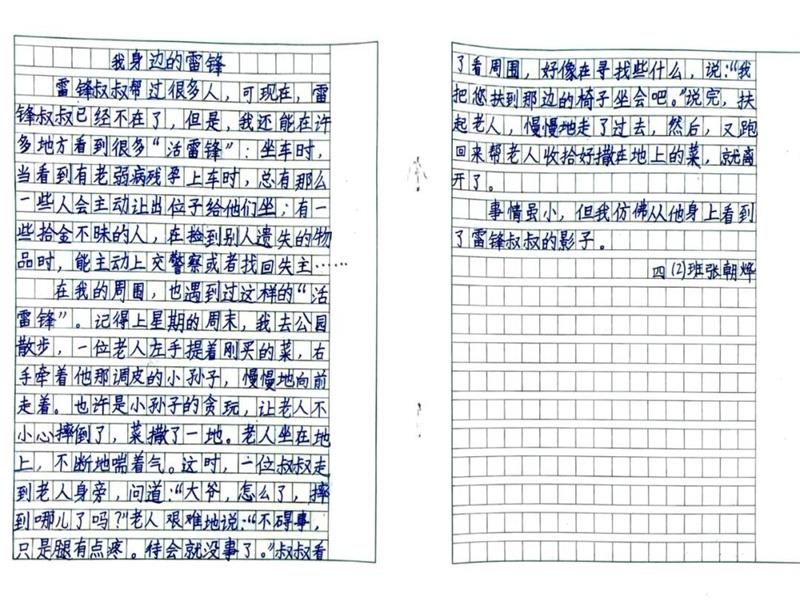 我身边的雷锋
雷锋叔叔帮过很多人，可现在，雷
锋叔叔已经不在了，但是，我还能在许
多地方看到很多“活雷锋”：坐车时，
当看到有老弱病残孕上车时，总有那么
一些人会主动让出位子给他们坐；有一
些拾金不昧的人，在捡到别人遗失的物
品时，能主动上交警察或者找回失主……
在我的周围，也遇到过这样的“活
雷锋”。记得上星期的周末，我去公园
散步，一位老人左手提着刚买的菜，右
手牵着他那调皮的小孙子，慢慢地向前
走着。也许是小孙子的贪玩，让老人不
小心摔倒了，菜撒了一地。老人坐在地
上，不断地喘着气。这时，一位叔叔走
到老人身旁，问道：“大爷，怎么了，摔
到哪儿了吗？”老人艰难地说：“不碍事，
只是腿有点疼。待会就没事了。”叔叔看
了看周围，好像在寻找些什么，说：“我
把您扶到那边的椅子坐会吧。”说完，扶
起老人，慢慢地走了过去，然后，又跑
回来帮老人收拾好撒在地上的菜，就离
开了。
事情虽小，但我仿佛从他身上看到
了雷锋叔叔的影子。
四（2）班张朝烨